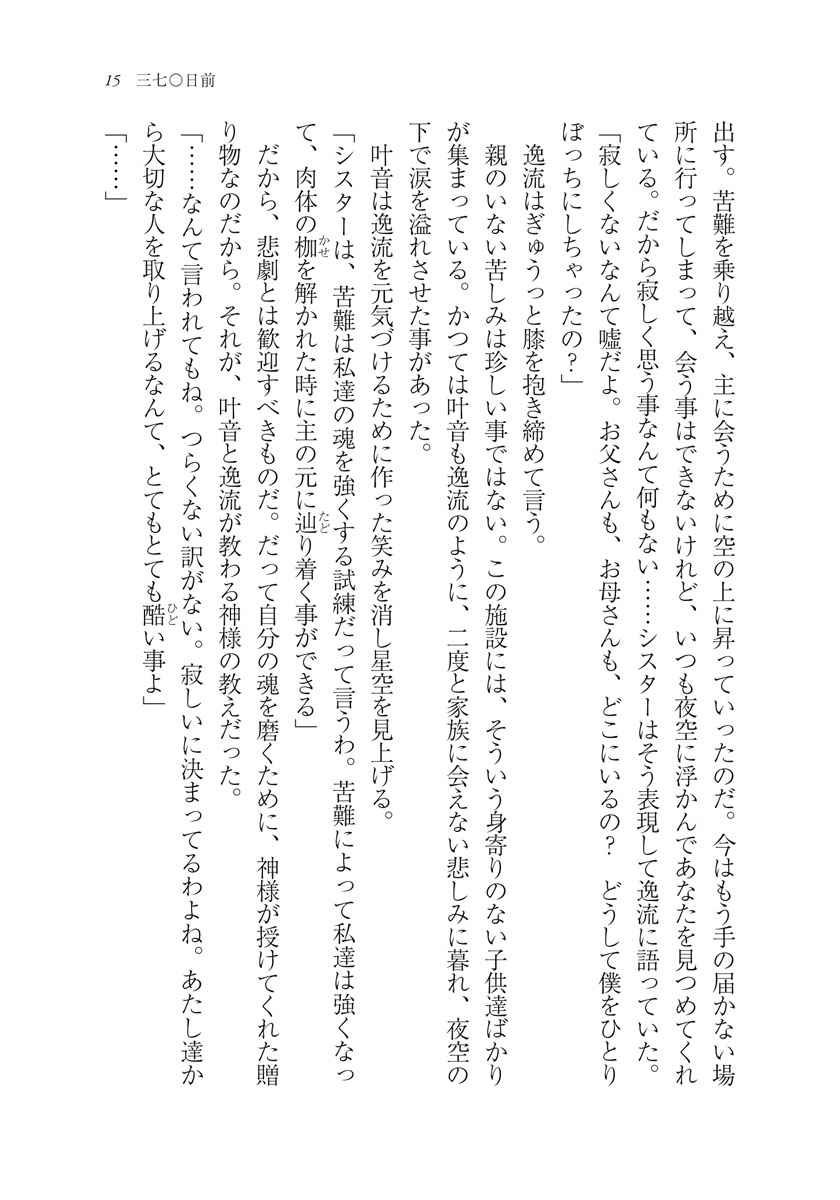 15 三七〇日前
出す。苦難を乗り越え、主に会うために空の上に昇っていったのだ。今はもう手の届かない場
所に行ってしまって、会う事はできないけれど、いつも夜空に浮かんであなたを見つめてくれ
ている。だから寂しく思う事なんて何もない……シスターはそう表現して逸流に語っていた。
「寂しくないなんて嘘だよ。お父さんも、お母さんも、どこにいるの？　どうして僕をひとり
ぼっちにしちゃったの？」
逸流はぎゅうっと膝を抱き締めて言う。
親のいない苦しみは珍しい事ではない。この施設には、そういう身寄りのない子供達ばかり
が集まっている。かつては叶音も逸流のように、二度と家族に会えない悲しみに暮れ、夜空の
下で涙を溢れさせた事があった。
叶音は逸流を元気づけるために作った笑みを消し星空を見上げる。
「シスターは、苦難は私達の魂を強くする試練だって言うわ。苦難によって私達は強くなっ
て、肉体の枷かせを解かれた時に主の元に辿たどり着く事ができる」
だから、悲劇とは歓迎すべきものだ。だって自分の魂を磨くために、神様が授けてくれた贈
り物なのだから。それが、叶音と逸流が教わる神様の教えだった。
「……なんて言われてもね。つらくない訳がない。寂しいに決まってるわよね。あたし達か
ら大切な人を取り上げるなんて、とてもとても酷ひどい事よ」
「……」